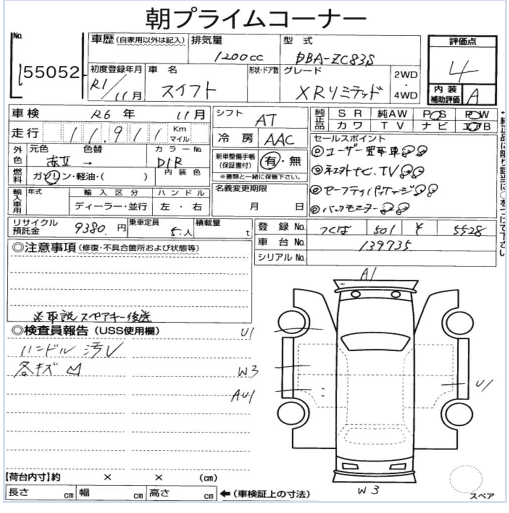 朝プライムコーナー
No.
55052
車歴 (自家用以外は記入) 排気量 型式
1200cc DBA-ZC83S
初度登録年月 車名 形状・ドア数 グレード
R1/11月 スイフト XRリミテッド 2WD 4WD
評価点
4
内装
補助評価 A
車検 R6年 11月 シフト AT
走行 11,911 Km マイル 冷房 AAC
純正品 SR 純AW PS PW
カワ TV ナビ エアB
外色 元色 色替 カラーNo.
→ D1R
燃料 ガソリン・軽油・( ) 内装色
新車整備手帳 (保証書付) 有・無
※書類と一緒に保管下さい。
セールスポイント
ユーザー買取車
ナビ、TV
セーフティパッケージ
バックモニター
輸入車用 年式 輸入区分 ハンドル
ディーラー・並行 左・右
名義変更期限
月 日
リサイクル預託金 9380円 乗車定員 5人 積載量 t
登録No. つくば 501 す 5528
車台No. 139735
シリアルNo.
◎注意事項 (修復・不具合箇所および状態等)
※取説スペアキー後渡
◎検査員報告 (USS使用欄)
ハンドル汚レ
各キズ
A1
U1
W3
AU1
U1
W3
【荷台内寸】約 × × (cm)
長さ cm 幅 cm 高さ cm ←(車検証上の寸法)
スペア